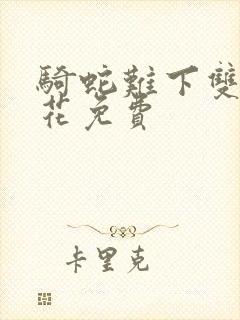 騎蛇難下雙
花免費
卡里克